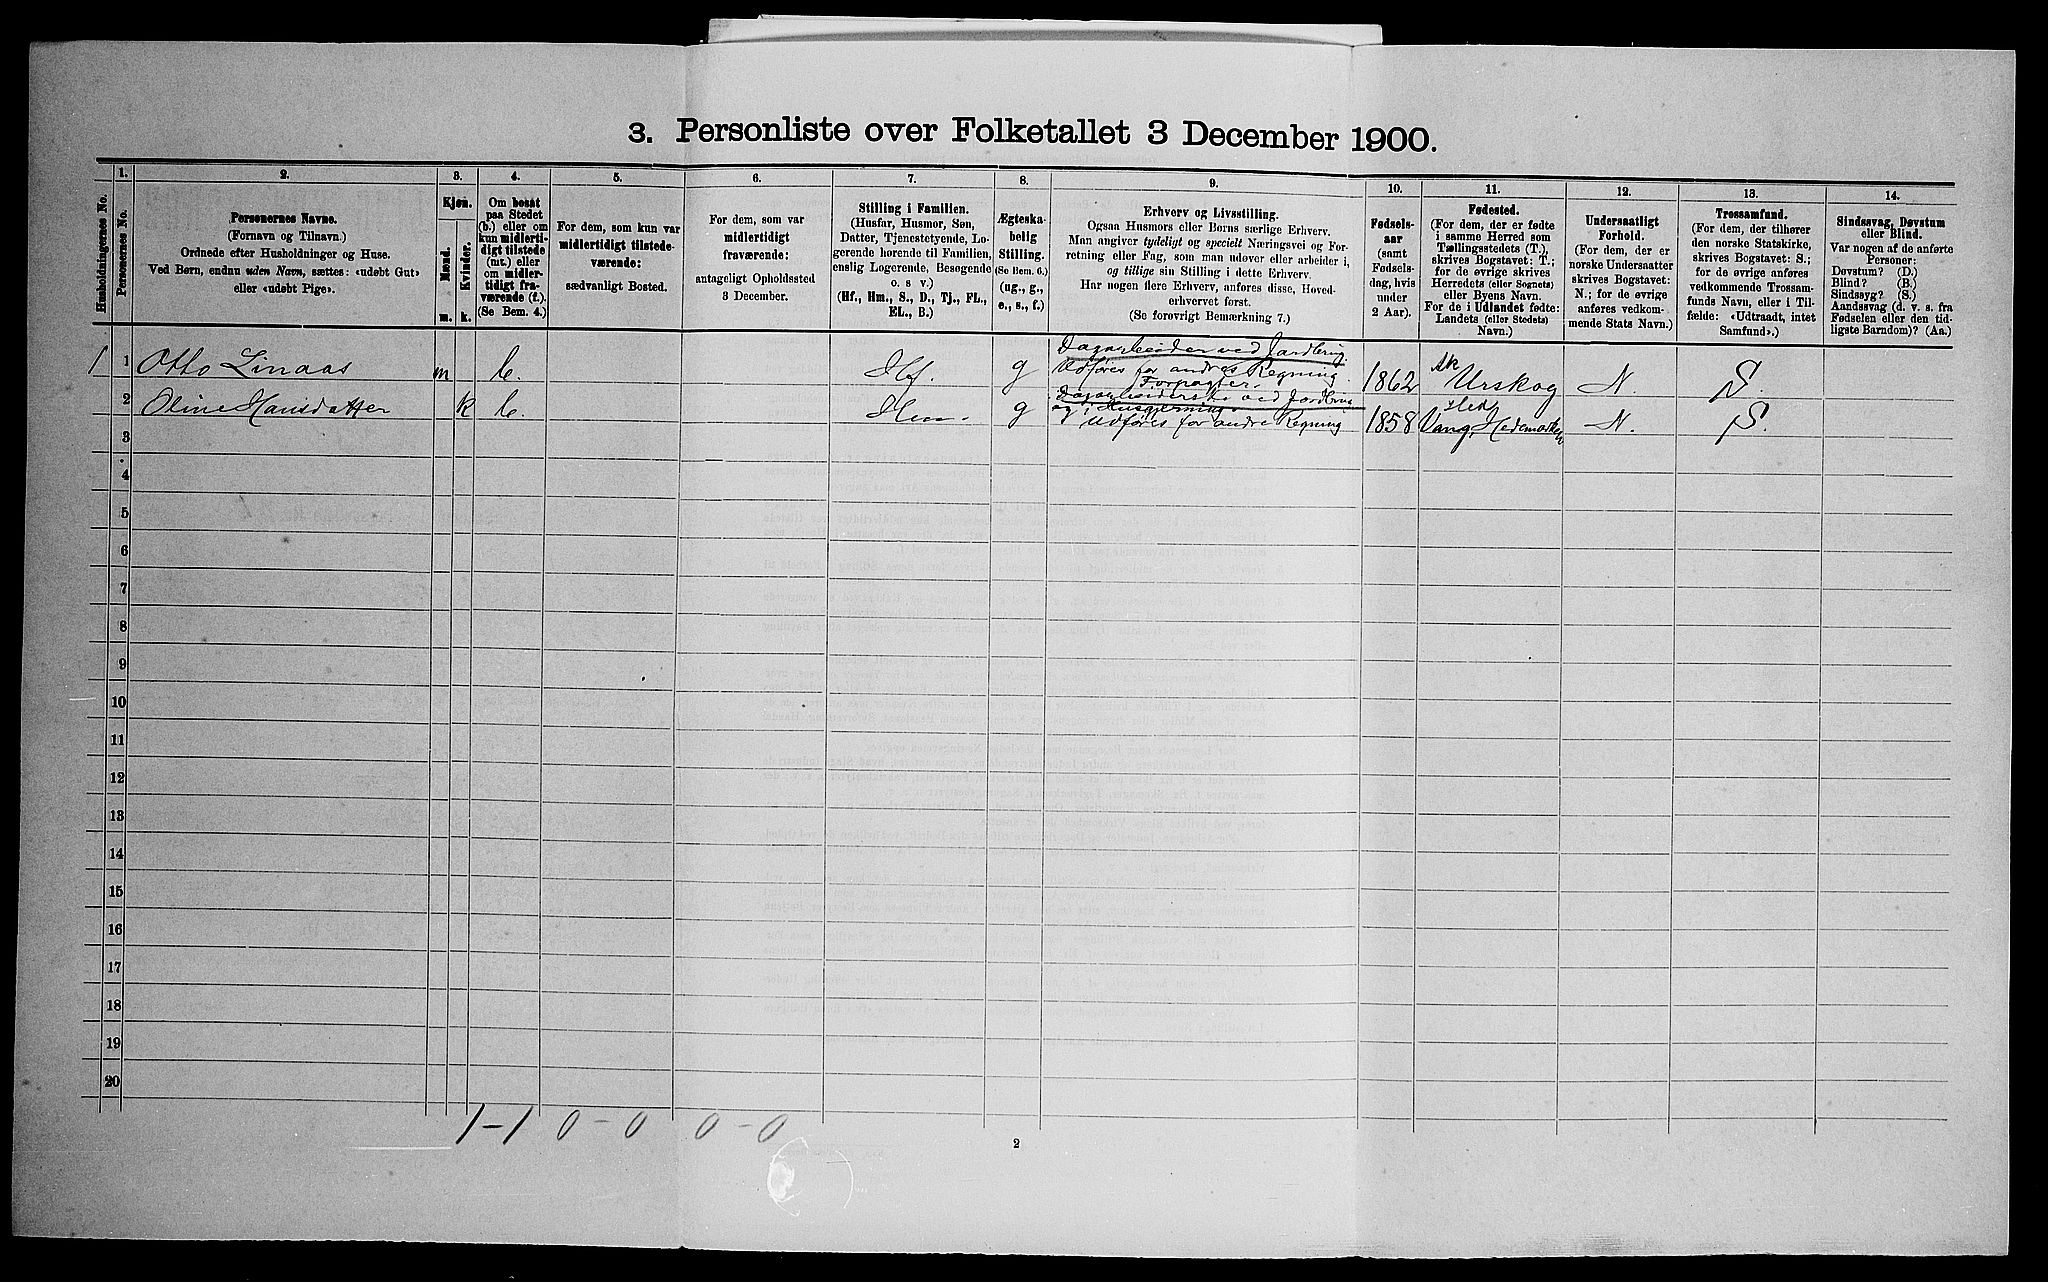 3. Personliste over Folketallet 3 December 1900.
Husholdningernes No.
1.
Personernes No.
2.
Personernes Navne.
(Fornavn og Tilnavn.)
Ordnede efter Husholdninger og Huse.
Ved Børn, endnu uden Navn, sættes: «udøbt Gut»
eller «udøbt Pige».
3.
Kjøn.
Mænd.
Kvinder.
m.
k.
4.
Om bosat
paa Stedet
(b.) eller om
kun midlerti-
digt tilstede
(mt.) eller
om midler-
tidigt fra-
værende (f.).
(Se Bem. 4.)
5.
For dem, som kun var
midlertidigt tilstede-
værende:
sædvanligt Bosted.
6.
For dem, som var
midlertidigt
fraværende:
antageligt Opholdssted
3 December.
7.
Stilling i Familien.
(Husfar, Husmor, Søn,
Datter, Tjenestetyende, Lo-
gerende hørende til Familien,
enslig Logerende, Besøgende
o. s v.)
(Hf., Hm., S., D., Tj., FL.,
EL., B.)
8.
Ægteska-
belig
Stilling.
(Se Bem. 6.)
(ug., g.,
e., s., f.)
9.
Erhverv og Livsstilling.
Ogsaa Husmors eller Børns særlige Erhverv.
Man angiver tydeligt og specielt Næringsvei og For-
retning eller Fag, som man udøver eller arbeider i,
og tillige sin Stilling i dette Erhverv.
Har nogen flere Erhverv, anføres disse, Hoved-
erhvervet først.
(Se forøvrigt Bemærkning 7.)
10.
Fødsels-
aar
(samt
Fødsels-
dag, hvis
under
2 Aar).
11.
Fødested.
(For dem, der er fødte
i samme Herred som
Tællingsstedets (T.),
skrives Bogstavet: T.;
for de øvrige skrives
Herredets (eller Sognets)
eller Byens Navn.
For de i Udlandet fødte:
Landets (eller Stedets)
Navn.)
12.
Undersaatligt
Forhold.
(For dem, der er
norske Undersaatter
skrives Bogstavet:
N.; for de øvrige
anføres vedkom-
mende Stats Navn.)
13.
Trossamfund.
(For dem, der tilhører
den norske Statskirke,
skrives Bogstavet: S.;
for de øvrige anføres
vedkommende Trossam-
funds Navn, eller i Til-
fælde: «Udtraadt, intet
Samfund».)
14.
Sindssvag, Døvstum
eller Blind.
Var nogen af de anførte
Personer:
Døvstum? (D.)
Blind? (B.)
Sindssyg? (S.)
Aandssvag (d. v. s. fra
Fødselen eller den tid-
ligste Barndom)? (Aa.)
1 1 Otto Linaas m b. Hf. g Dagarbeider ved Jordbrug. Udføres for andres Regning. Forpagter. 1862 Ak Urskog N. S.
2 Oline Hansdatter k b. Hm. g Dagarbeiderske ved Jordbrug og i Husgjerning. Udføres for andre Regning 1858 Hed Vang, Hedemarken N. S.
3
4
5
6
7
8
9
10
11
12
13
14
15
16
17
18
19
20
1-1 0-0 0-0
2